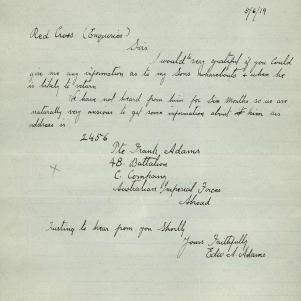 5/6/19
Red Cross (Enquiries)
Sirs
I would be very grateful if you could
give me any information as to my sons whereabouts & when he
is likely to return
We have not heard from him for Six Months so we are
naturally very anxious to get some information about him his
address is
2456
Pte Frank Adams
4B. Battalion
C. Company
Australian Imperial Forces
Abroad
Trusting to hear from you Shortly
Yours Faithfully
Edw A. Adams